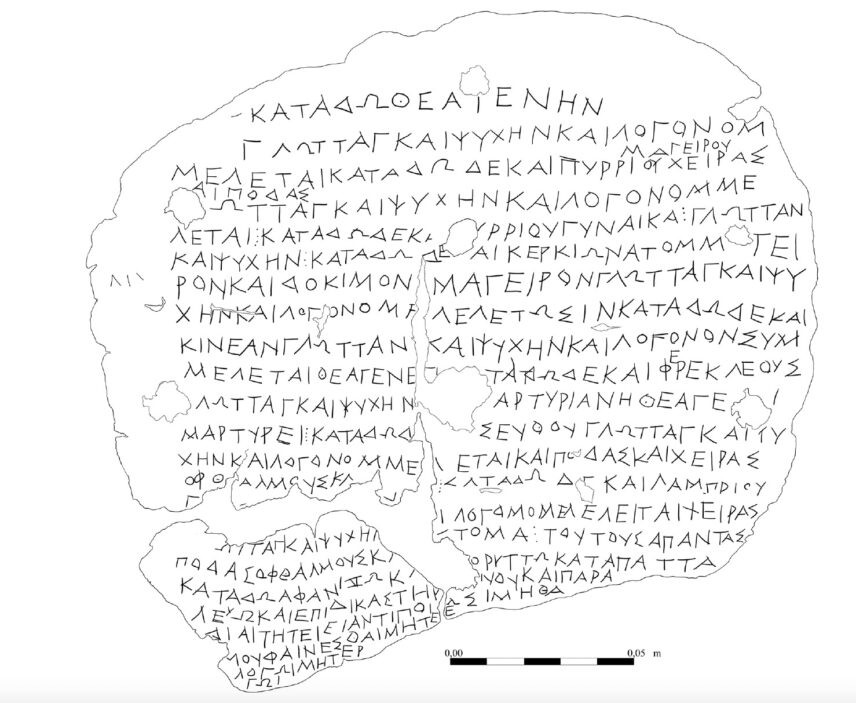 ΚΑΤΑΔΩΘΕΑΓΕΝΗΝ
ΓΛΩΤΤΑΓΚΑΙΨΥΧΗΝΚΑΙΛΟΓΟΝΟΜ
ΜΑΓΕΙΡΟΥ
ΜΕΛΕΤΑΙΚΑΤΑΔΩΔΕΚΑΙΠΥΡΡΙΟΥΧΕΙΡΑΣ
ΑΙΠΟΔΑΣ
ΩΤΤΑΓΚΑΙΨΥΧΗΝΚΑΙΛΟΓΟΝΟΜΜΕ
ΛΕΤΑΙ⋮ΚΑΤΑΔΩΔΕΚΑ ΥΡΡΙΟΥΓΥΝΑΙΚΑ⋮ΓΛΩΤΤΑΝ
ΚΑΙΨΥΧΗΝ⋮ΚΑΤΑΔΩΔΕ ΑΙΚΕΡΚΙΩΝΑΤΟΜΜ ΓΕΙ
ΡΟΝΚΑΙΔΟΚΙΜΟΝ ΜΑΓΕΙΡΟΝΓΛΩΤΤΑΓΚΑΙΨΥ
ΧΗΝΚΑΙΛΟΓΟΝΟΜΕ ΛΕΛΕΤΩΣΙΝΚΑΤΑΔΩΔΕΚΑΙ
ΚΙΝΕΑΝΓΛΩΤΤΑΝ ΚΑΙΨΥΧΗΝΚΑΙΛΟΓΟΝΟΝΣΥΜ
ΜΕΛΕΤΑΙΘΕΑΓΕΝΕ ΤΑΔΩΔΕΚΑΙΦΕΡΕΚΛΕΟΥΣ
ΛΩΤΤΑΓΚΑΙΨΥΧΗΝ ΑΡΤΥΡΙΑΝΗΘΕΑΓΕ Ι
ΜΑΡΤΥΡΕΙ⋮ΚΑΤΑΔΩΔ ΣΕΥΘΟΥΓΛΩΤΤΑΓΚΑΙΨΥ
ΧΗΝΚΑΙΛΟΓΟΝΟΜΜΕ ΕΤΑΙΚΑΙΠΟΔΑΣΚΑΙΧΕΙΡΑΣ
ΟΦΘΑΛΜΟΥΣΚΑ ΚΑΤΑΔΩΔ ΚΑΙΛΑΜΠΡΙΟΥ
Γ ΛΟΓΟΜΟΜΕΛΕΙΤΑΙΧΕΙΡΑΣ
ΩΤΤΑΓΚΑΙΨΥΧΗΝ ΤΟΜΑ⋮ΤΟΥΤΟΥΣΑΠΑΝΤΑΣ
ΠΟΔΑΣΟΦΘΑΛΜΟΥΣΚ ΟΡΥΤΤΩΚΑΤΑΠΑΤΤΑ
ΚΑΤΑΔΩΑΦΑΝΙΖΩΚ ΟΥΚΑΙΠΑΡΑ
ΛΕΥΩΚΑΙΕΠΙΔΙΚΑΣΤΗΡ ΕΣΙΜΗΘΑ
ΔΙΑΙΤΗΤΕΙΕΙΑΝΤΙΠΟΙ
ΜΟΥΦΑΙΝΕΣΘΑΙΜΗΤΕΕ
ΛΟΓΩΙΜΗΤΕΕΡ
ΓΩΙ